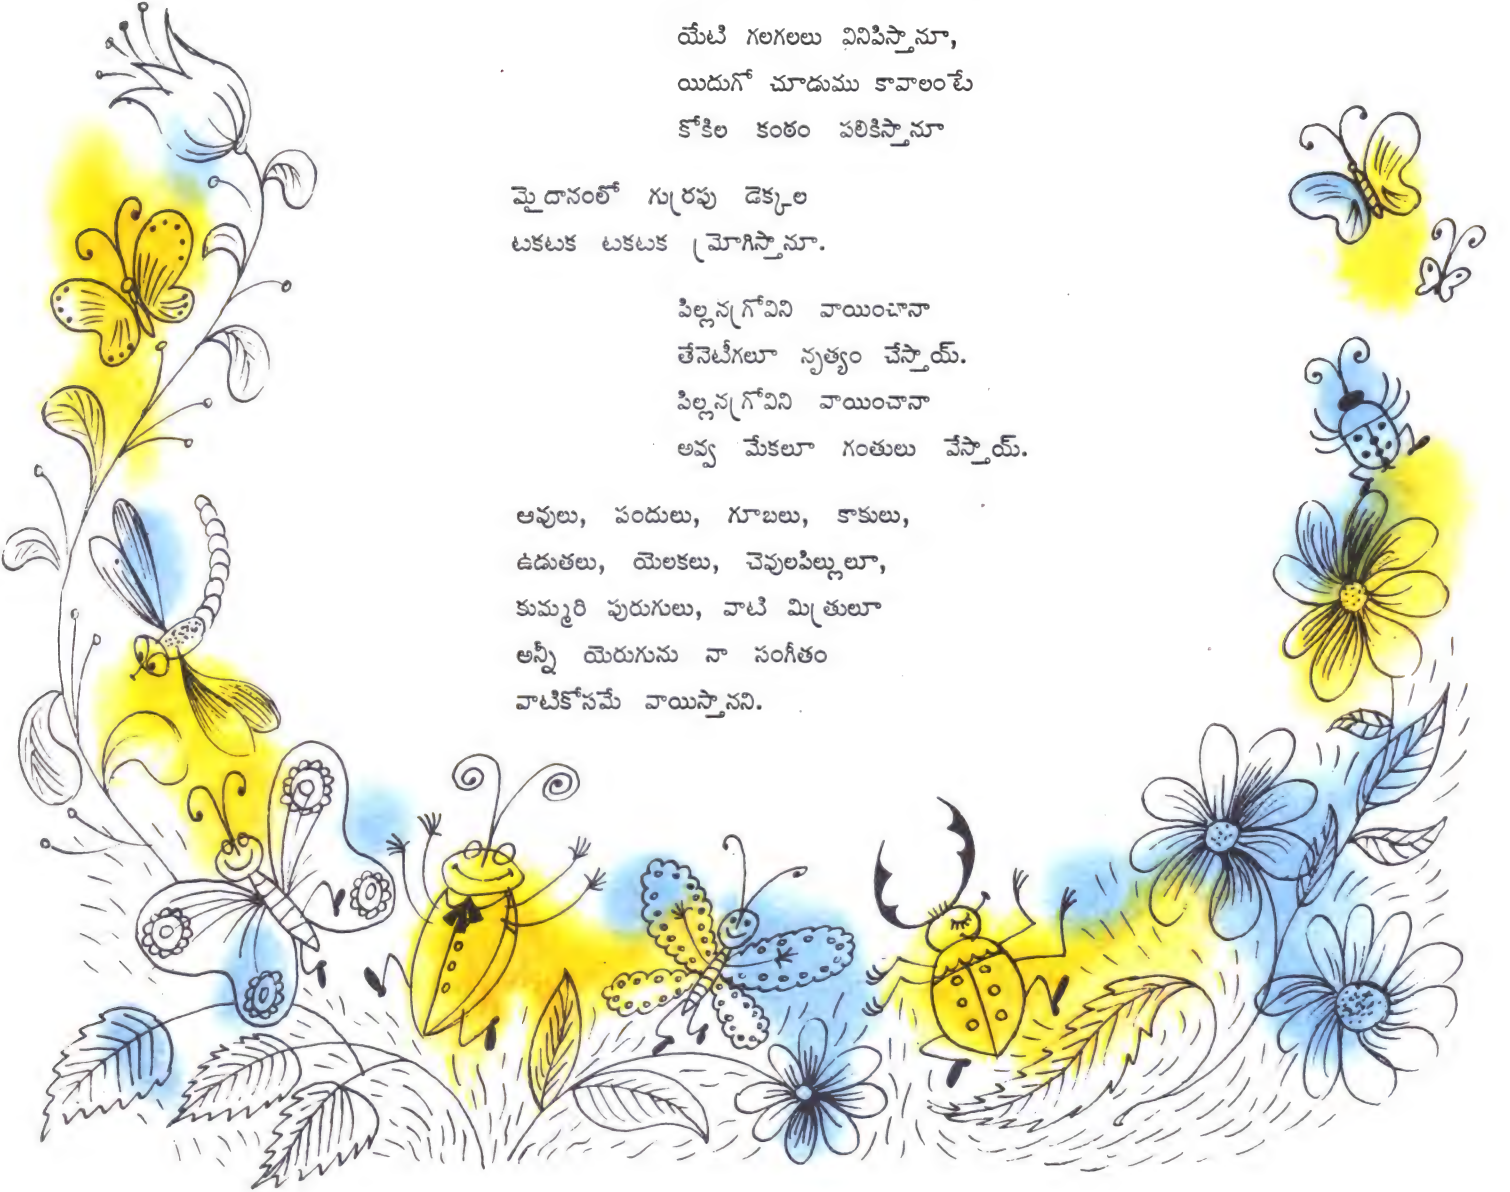 యేటి గలగలలు వినిపిస్తానూ,
యిదుగో చూడుము కావాలంటే
కోకిల కంఠం పలికిస్తానూ
మైదానంలో గుర్రపు డెక్కల
టకటక టకటక మ్రోగిస్తానూ.
పిల్లనగ్రోవిని వాయించానా
తేనెటీగలూ నృత్యం చేస్తాయ్.
పిల్లనగ్రోవిని వాయించానా
అవ్వ మేకలూ గంతులు వేస్తాయ్.
ఆవులు, పందులు, గూబలు, కాకులు,
ఉడుతలు, యెలకలు, చెవులపిల్లులూ,
కుమ్మరి పురుగులు, వాటి మిత్రులూ
అన్నీ యెరుగును నా సంగీతం
వాటికోసమే వాయిస్తానని.